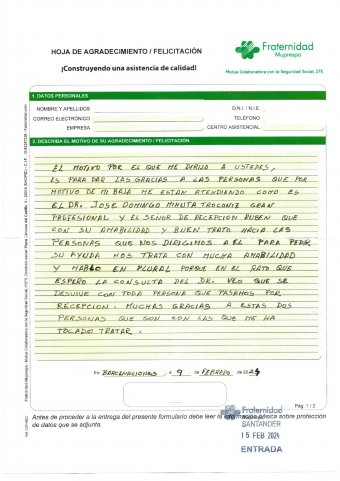 HOJA DE AGRADECIMIENTO / FELICITACIÓN
¡Construyendo una asistencia de calidad!
Fraternidad
Muprespa
Mutua Colaboradora con la Seguridad Social, 275.
1. DATOS PERSONALES
NOMBRE Y APELLIDOS
D N I / N I E
CORREO ELECTRÓNICO
TELÉFONO
EMPRESA
CENTRO ASISTENCIAL
2. DESCRIBA EL MOTIVO DE SU AGRADECIMIENTO / FELICITACIÓN
EL MOTIVO POR EL QUE ME DIRIJO A USTEDES,
ES PARA DAR LAS GRACIAS A LAS PERSONAS QUE POR
MOTIVO DE MI BAJA ME ESTAN ATENDIENDO COMO ES
EL DR. JOSE DOMINGO TROCONIZ GRAN
PROFESIONAL Y EL SEÑOR DE RECEPCION RUBEN QUE
CON SU AMABILIDAD Y BUEN TRATO HACIA LAS
PERSONAS QUE NOS DIRIGIMOS A EL PARA PEDIR
SU AYUDA NOS TRATA CON MUCHA AMABILIDAD
Y HABLO EN PLURAL PORQUE EN EL RATO QUE
ESPERO LA CONSULTA DEL DR. VEO QUE SE
DESVIVE CON TODA PERSONA QUE PASAMOS POR
RECEPCION. MUCHAS GRACIAS A ESTAS DOS
PERSONAS QUE SON CON LAS QUE ME HA
TOCADO TRATAR.
En a 9 de FEBRERO de 2024
Pág. 1 / 2
Antes de proceder a la entrega del presente formulario debe leer la información básica sobre protección
de datos que se adjunta.
Fraternidad
SANTANDER
15 FEB 2024
ENTRADA